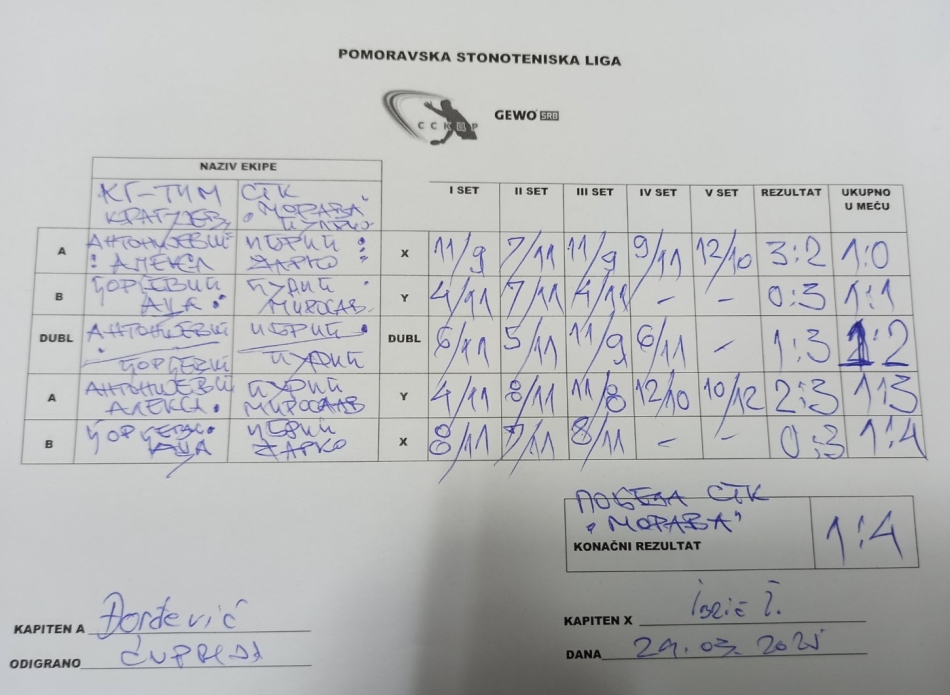 POMORAVSKA STONOTENISKA LIGA
ССКЦР GEWO SRB
NAZIV EKIPE
КГ-ТИМ СТК I SET II SET III SET IV SET V SET REZULTAT UKUPNO U MEČU
"МОРАВА"
A АНТОНИЈЕВИЋ X 11/9 7/11 11/9 9/11 12/10 3:2 1:0
АЛЕКСА ЖАРКО
B ЂОРЂЕВИЋ ЂУРИЋ Y 4/11 7/11 4/11 - - 0:3 1:1
АЦА МИРОСЛАВ
DUBL АНТОНИЈЕВИЋ DUBL 6/11 5/11 11/9 6/11 - 1:3 1:2
ЂОРЂЕВИЋ ЂУРИЋ
A АНТОНИЈЕВИЋ ЂУРИЋ Y 4/11 8/11 11/8 12/10 10/12 2:3 1:3
АЛЕКСА МИРОСЛАВ
B X 8/11 7/11 8/11 - - 0:3 1:4
АЦА ЖАРКО
ПОБЕДА СТК
"МОРАВА"
KONAČNI REZULTAT 1:4
KAPITEN A Đorđević
ODIGRANO
KAPITEN X
DANA 29.03.2025